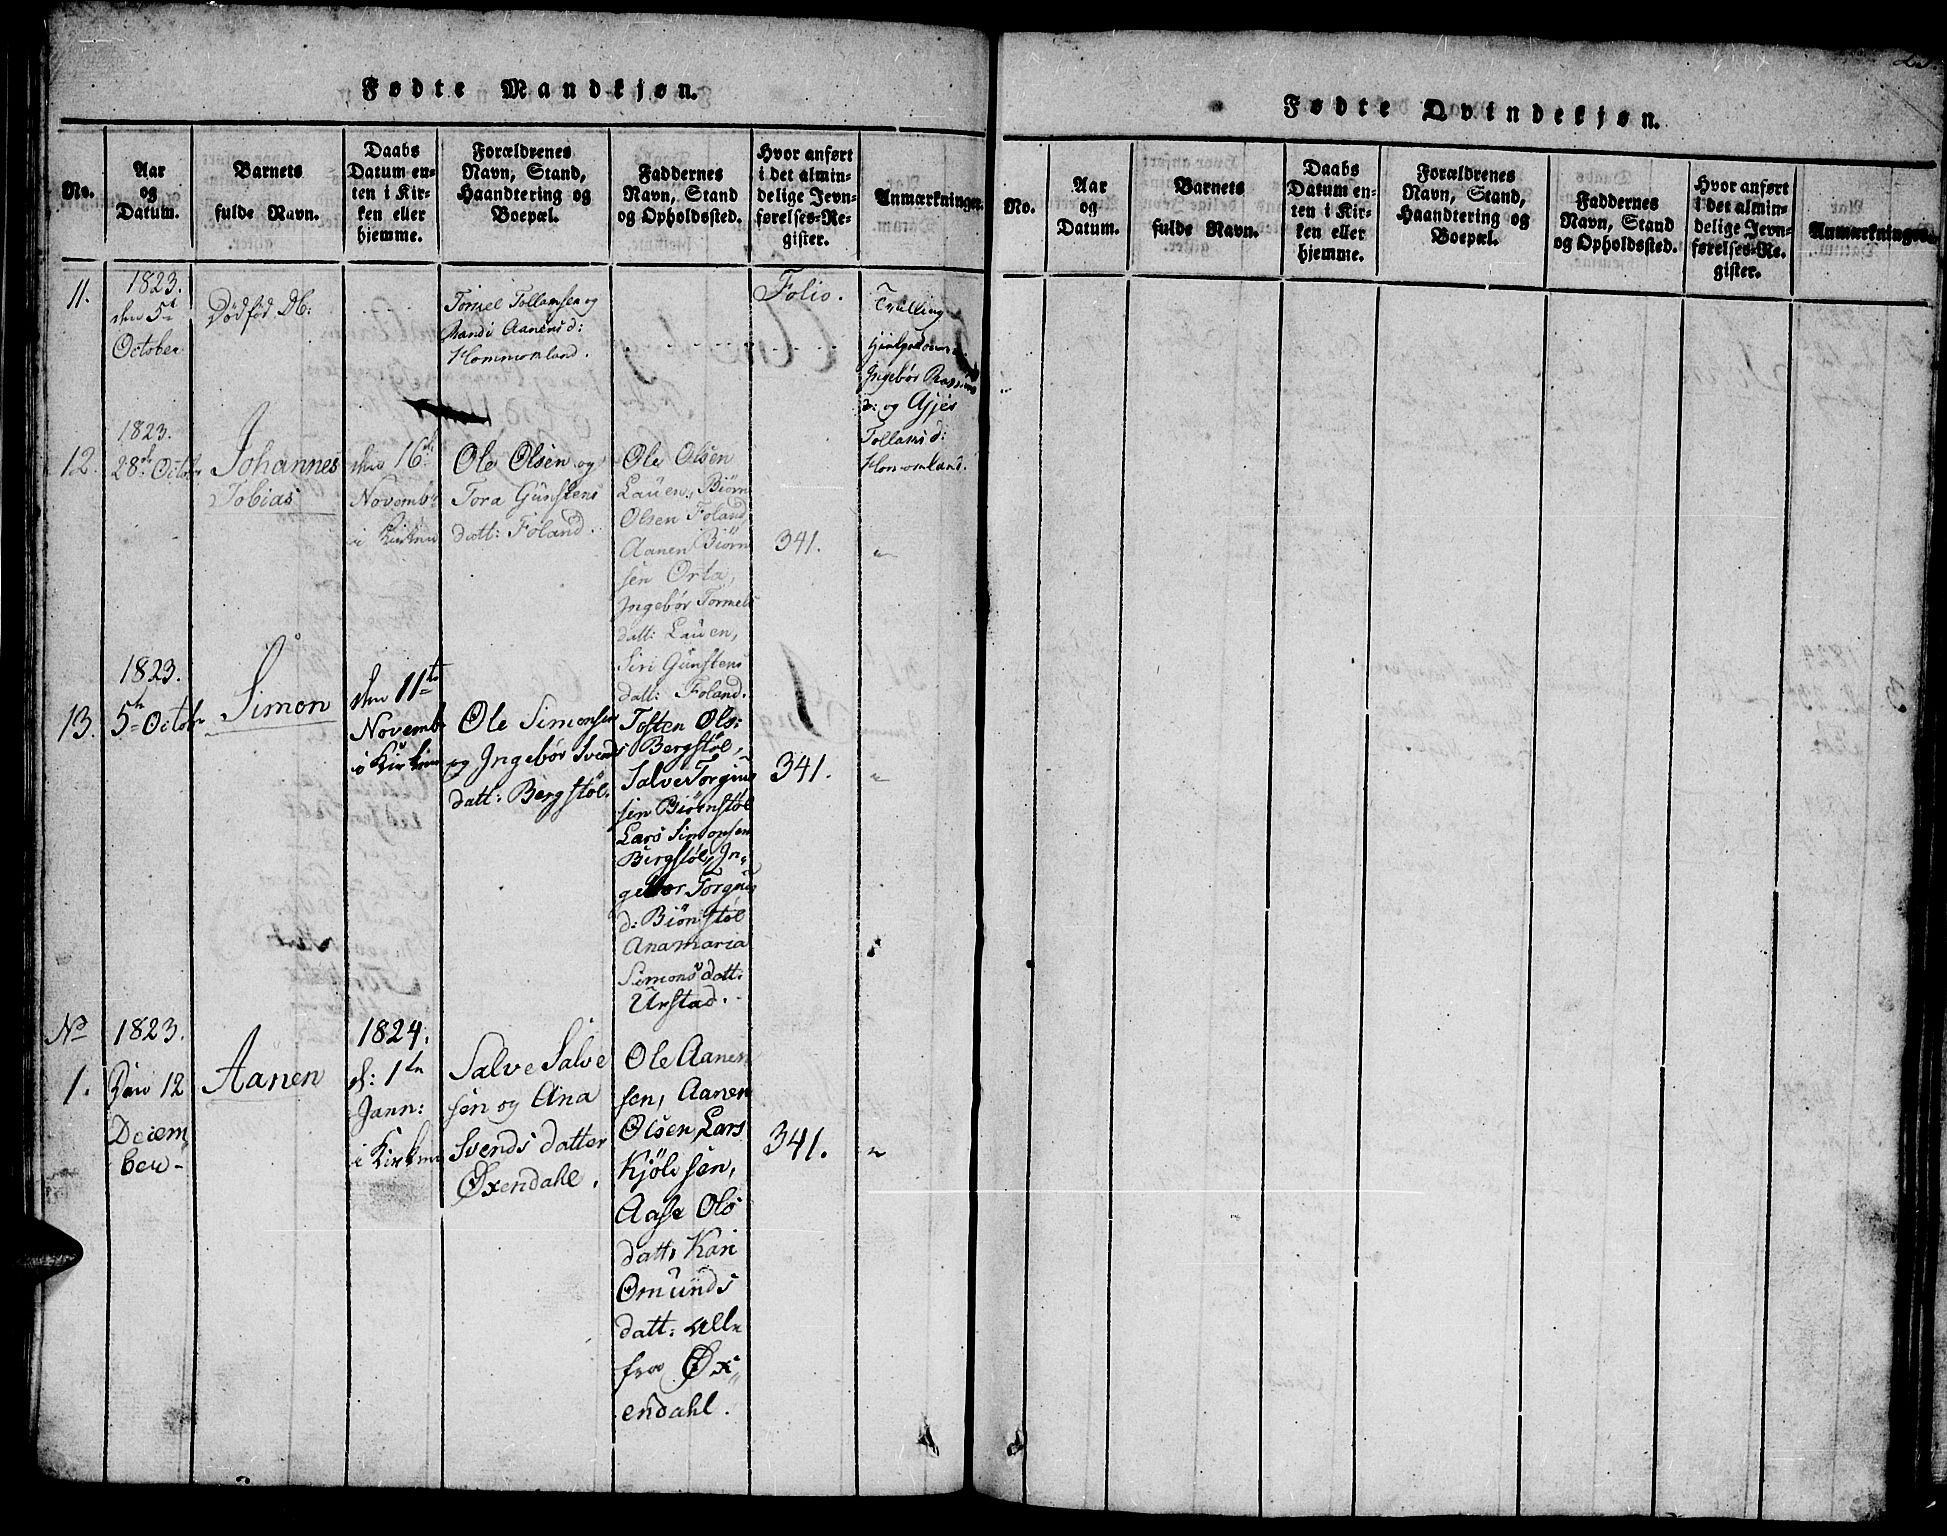 Fødte Mandkjøn.
No.
Aar
og
Datum.
Barnets
fulde Navn.
Daabs
Datum en-
ten i Kir-
ken eller
hjemme.
Forældrenes
Navn, Stand,
Haandtering og
Boepæl.
Faddernes
Navn, Stand
og Opholdssted.
Hvor anført
i det almin-
delige Jevn-
førelses-Re-
gister.
Anmærkninger.
11.
1823.
den 5t
October
Dödfød Db:
Tormel Tollamsen og
Randi Aanens d:
Hommomland.
Folio.
Trilling
Ingebör
d: og Ajjes
Tollams d:
Hommomland.
12.
1823.
28de Octobr
Johannes
Tobias
den 16de
Novembr
i Kirken
Ole Olsen og
Tora Günstens
datt: Foland.
Ole Olsen
Lauen, Biörn
Olsen Foland,
Aanen Biörn
sen Orta,
Ingebör Tormels
datt: Lauen,
Siri Günstens
datt: Foland.
341.
"
13.
1823.
5te Octobr
Simon
den 11te
Novembr
i Kirken
Ole Simonsen
og Ingebör Svends
datt: Bergstöl.
Tosten Ols:
Bergstöl,
Salve Torgius
sen Biörnstöl
Lars Simonsen
Bergstöl, In-
gebor Torgius
d: Biönstöl
Anamaria
Simons datt:
Urstad.
341.
"
No
1.
1823.
Den 12
Decem
ber
Aanen
1824.
d: 1te
Jann:
i Kirken
Salve Salve
sen og Ana
Svends datter
Øxendahl.
Ole Aanen
sen, Aanen
Olsen, Lars
Kjöli sen,
Aase Ols
datt: Kari
Omünds
datt: alle
fra Øx-
endahl.
341.
"
Fødte Qvindekjøn.
No.
Aar
og
Datum.
Barnets
fulde Navn.
Daabs
Datum en-
ten i Kir-
ken eller
hjemme.
Forældrenes
Navn, Stand,
Haandtering og
Boepæl.
Faddernes
Navn, Stand
og Opholdssted.
Hvor anført
i det almin-
delige Jevn-
førelses-Re-
gister.
Anmærkninger.